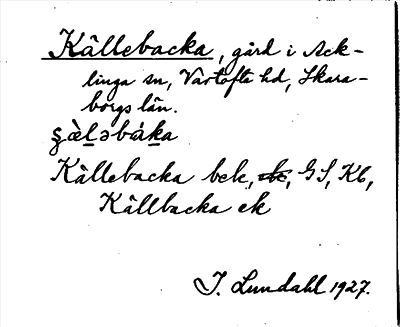 Källebacka, gård i Ack-
linga sn, Vartofta hd, Skara-
borgs län.
Källebacka bek, GS, Kb,
Källbacka ek
I. Lundahl 1927.